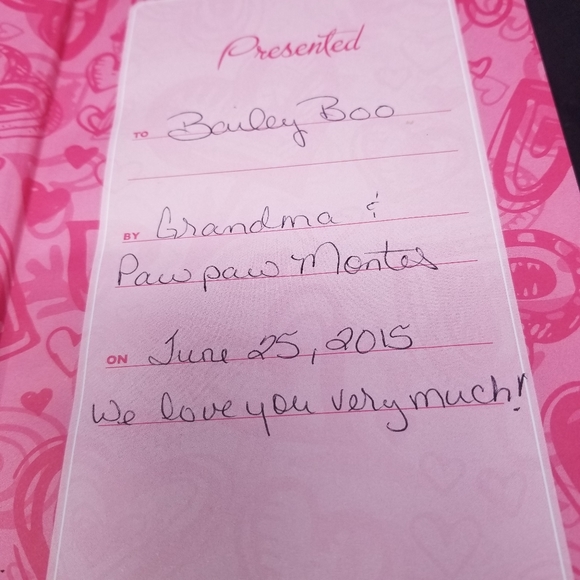 Presented
TO Bailey Boo
BY Grandma &
Paw paw Montes
ON June 25, 2015
We love you very much!